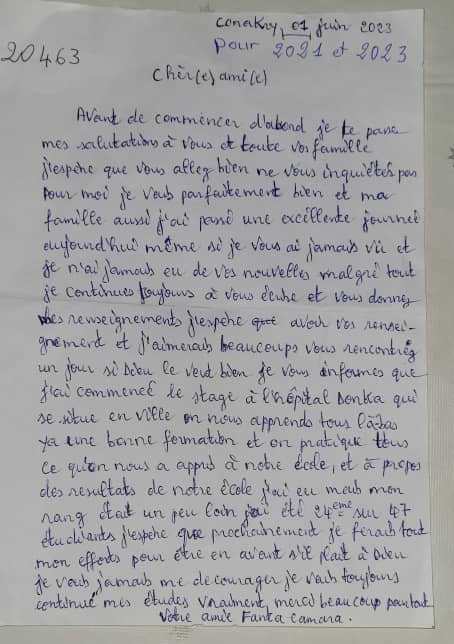 Conakry, 01 juin 2023
20463
pour 2021 et 2023
Chèr(e) ami(e)
Avant de commencer d'abord je te passe
mes salutations à vous et toute vos famille
j'espère que vous allez bien ne vous inquiétés pas
pour moi je vais parfaitement bien et ma
famille aussi j'ai passé une excellente journeé
aujourd'hui même si je vous ai jamais vu et
je n'ai jamais eu de vos nouvelles malgré tout
je continues toujours à vous écrire et vous donnez
mes renseignements j'espère que avoir vos rensei-
gnement et j'aimerais beaucoups vous rencontrés
un jour si Dieu le veut bien je vous informes que
j'ai commencé le stage à l'hôpital Donka qui
se situe en ville on nous apprends tous là-bas
ya une bonne formation et on pratique tous
ce qu'on nous a appris à notre école, et à propos
des resultats de notre école j'ai eu mais mon
rang était un peu loin j'ai été 24eme sur 47
étudiants j'espère que prochainement je ferais tout
mon efforts pour être en avant s'il plaît à Dieu
je vais jamais me decourager je vais toujours
continué mes études vraiment, merci beaucoup pour tout
Votre amie Fanta Camara.